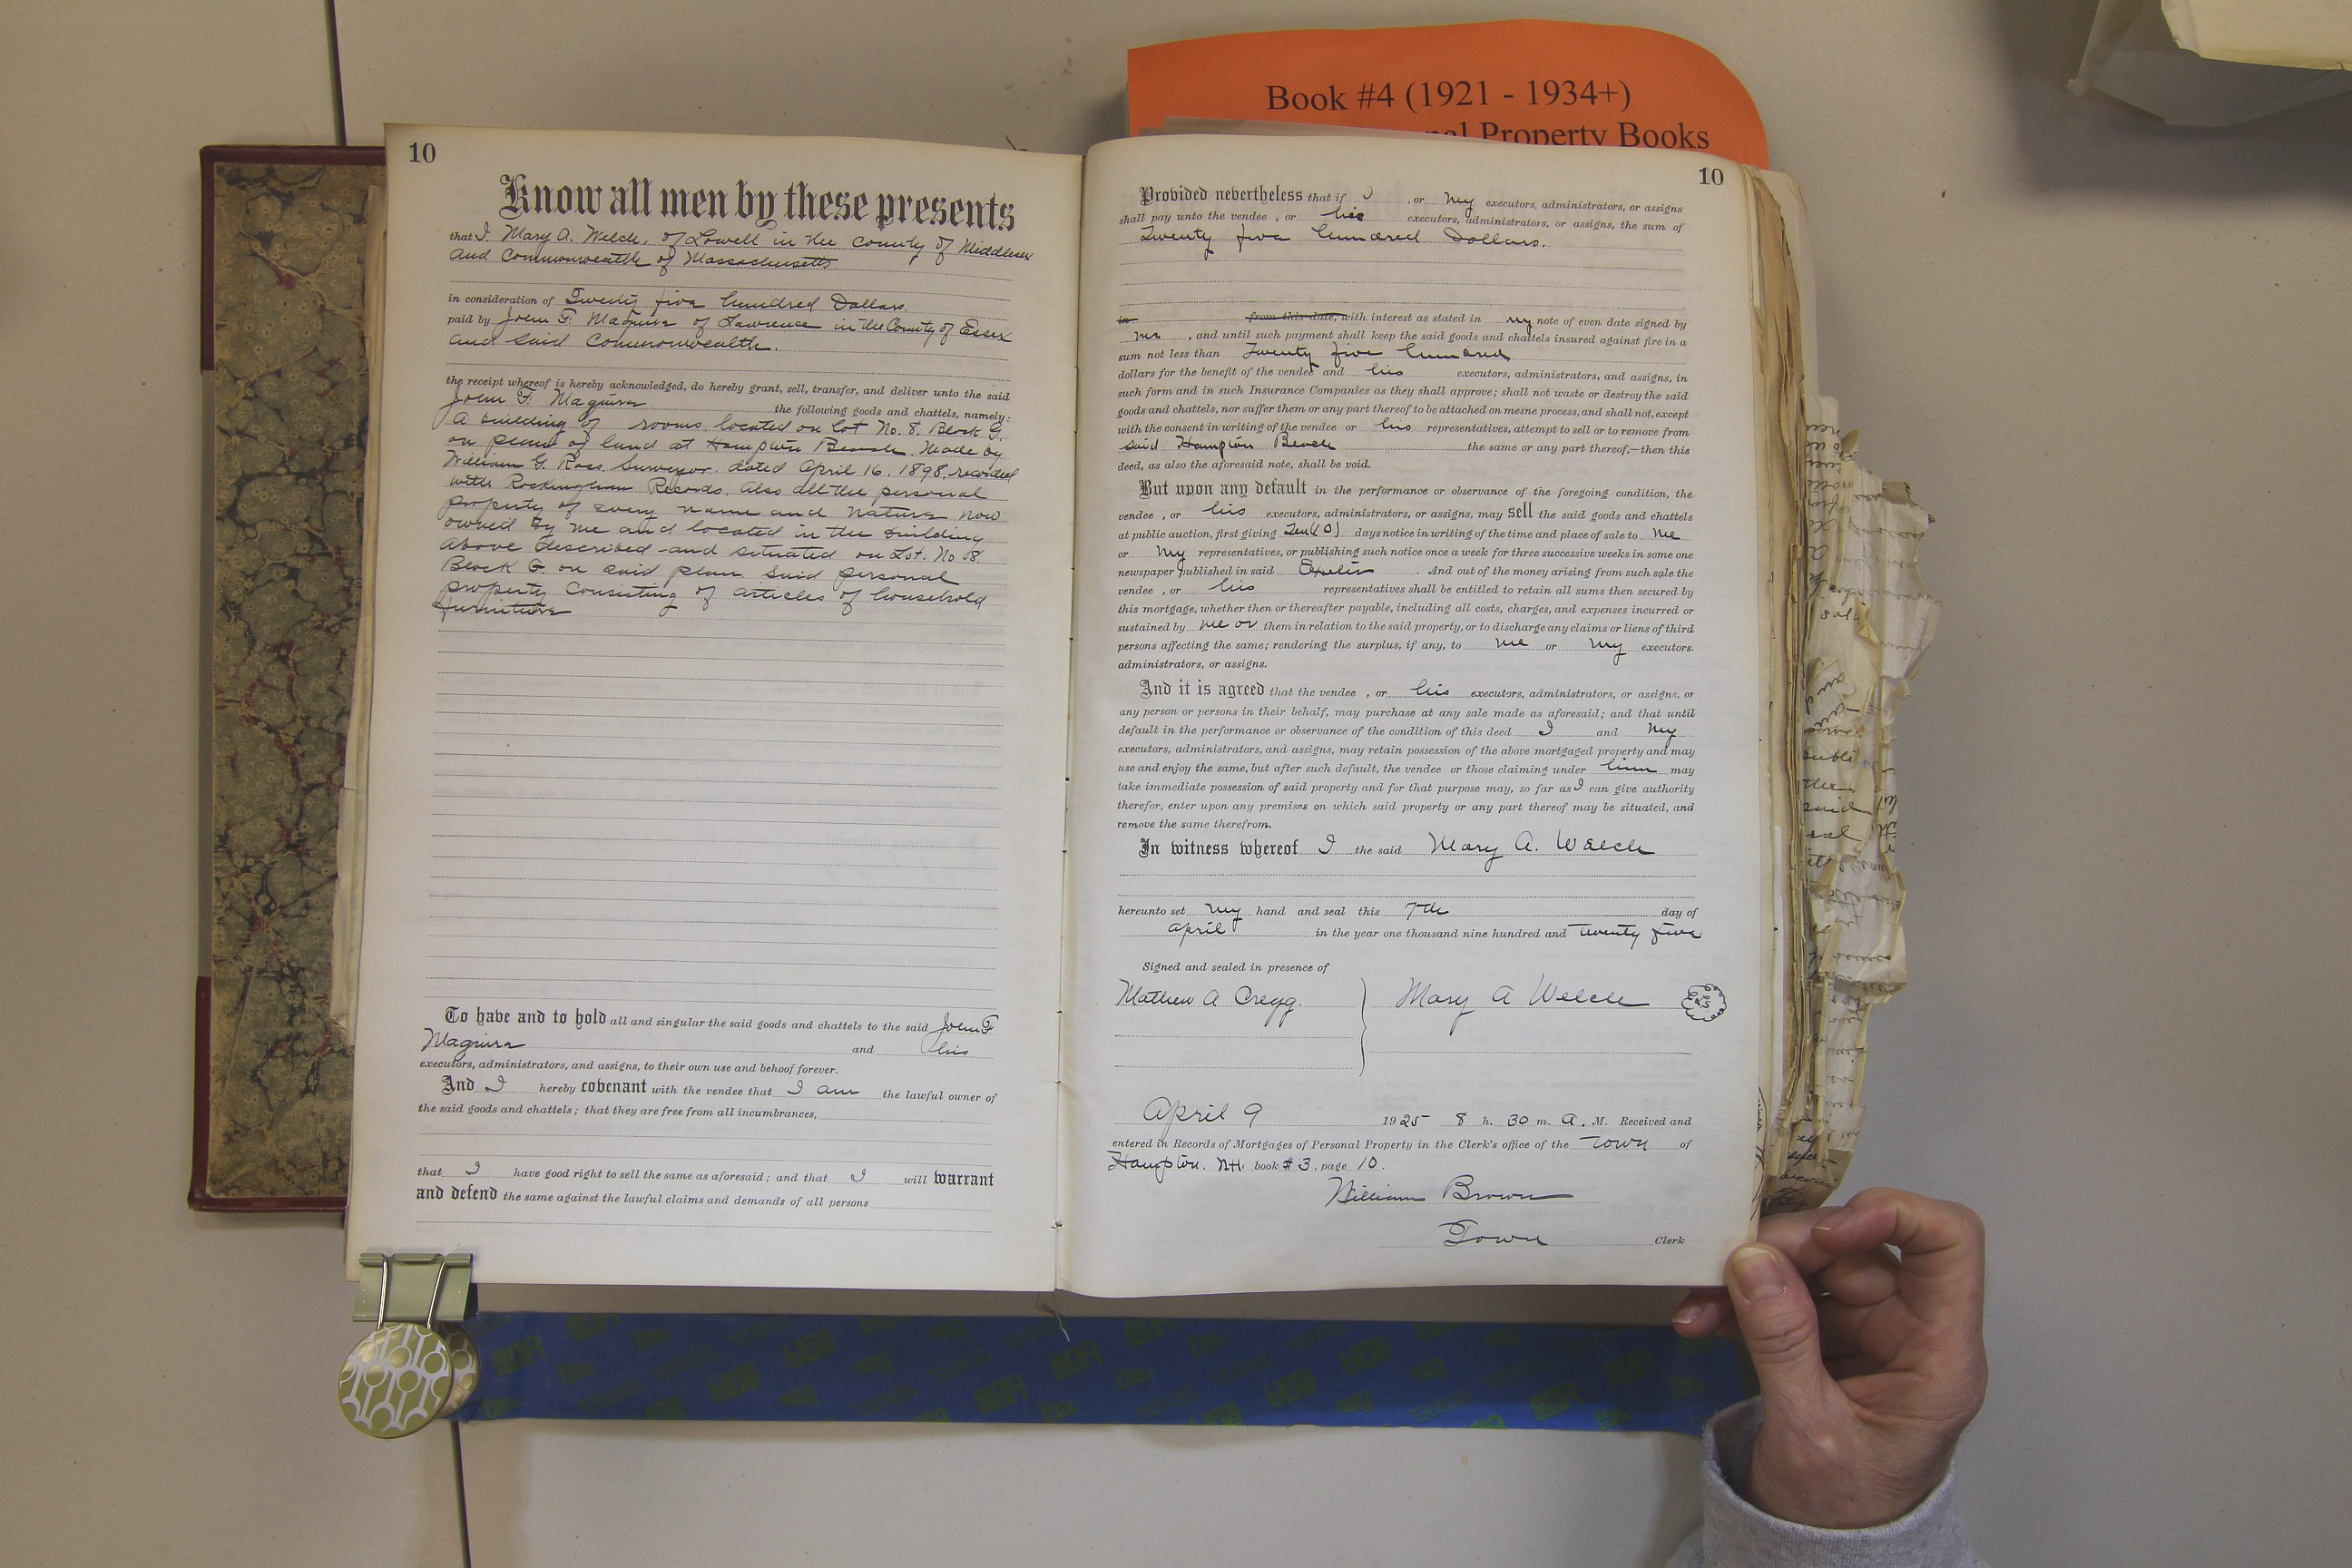 Book #4 (1921 - 1934+)
Property Books
10
Know all men by these presents
that I. Mary A. Welch. of Lowell in the County of Middlesex
and Commonwealth of Massachusetts.
in consideration of Twenty five hundred Dollars.
paid by John F. Maguire of Lawrence in the County of Essex
and said Commonwealth.
the receipt whereof is hereby acknowledged, do hereby grant, sell, transfer, and deliver unto the said
John F. Maguire the following goods and chattels, namely:
A building of rooms. located on lot No. 8. Block G.
on plan of land at Hampton Beach. Made by
William G. Ross. Surveyor. dated April 16. 1898. recorded
with Rockingham Records. Also all the personal
property of every name and nature now
owned by me and located in the building
above described and situated on Lot. No 8.
Block G. on said plan. Said personal
property consisting of articles of household
furniture
To have and to hold all and singular the said goods and chattels to the said John F
Maguire and his
executors, administrators, and assigns, to their own use and behoof forever.
And I hereby covenant with the vendee that I am the lawful owner of
the said goods and chattels; that they are free from all incumbrances,
that I have good right to sell the same as aforesaid; and that I will warrant
and defend the same against the lawful claims and demands of all persons
10
Provided nevertheless that if I , or my executors, administrators, or assigns
shall pay unto the vendee , or his executors, administrators, or assigns, the sum of
Twenty five hundred Dollars.
in from this date, with interest as stated in my note of even date signed by
me , and until such payment shall keep the said goods and chattels insured against fire in a
sum not less than Twenty five hundred
dollars for the benefit of the vendee and his executors, administrators, and assigns, in
such form and in such Insurance Companies as they shall approve; shall not waste or destroy the said
goods and chattels, nor suffer them or any part thereof to be attached on mesne process, and shall not, except
with the consent in writing of the vendee or his representatives, attempt to sell or to remove from
said Hampton Beach the same or any part thereof,—then this
deed, as also the aforesaid note, shall be void.
But upon any default in the performance or observance of the foregoing condition, the
vendee , or his executors, administrators, or assigns, may sell the said goods and chattels
at public auction, first giving Ten (10) days notice in writing of the time and place of sale to me
or my representatives, or publishing such notice once a week for three successive weeks in some one
newspaper published in said Exeter . And out of the money arising from such sale the
vendee , or his representatives shall be entitled to retain all sums then secured by
this mortgage, whether then or thereafter payable, including all costs, charges, and expenses incurred or
sustained by me or them in relation to the said property, or to discharge any claims or liens of third
persons affecting the same; rendering the surplus, if any, to me or my executors.
administrators, or assigns.
And it is agreed that the vendee , or his executors, administrators, or assigns, or
any person or persons in their behalf, may purchase at any sale made as aforesaid; and that until
default in the performance or observance of the condition of this deed I and my
executors, administrators, and assigns, may retain possession of the above mortgaged property and may
use and enjoy the same, but after such default, the vendee or those claiming under him may
take immediate possession of said property and for that purpose may, so far as I can give authority
therefor, enter upon any premises on which said property or any part thereof may be situated, and
remove the same therefrom.
In witness whereof I the said Mary A. Welch
hereunto set my hand and seal this 7th day of
April in the year one thousand nine hundred and twenty five
Signed and sealed in presence of
Mathew A Cregg. Mary A Welch
April 9 1925 8 h. 30 m. A. M. Received and
entered in Records of Mortgages of Personal Property in the Clerk's office of the Town of
Hampton. NH. book # 3, page 10.
William Brown
Town Clerk